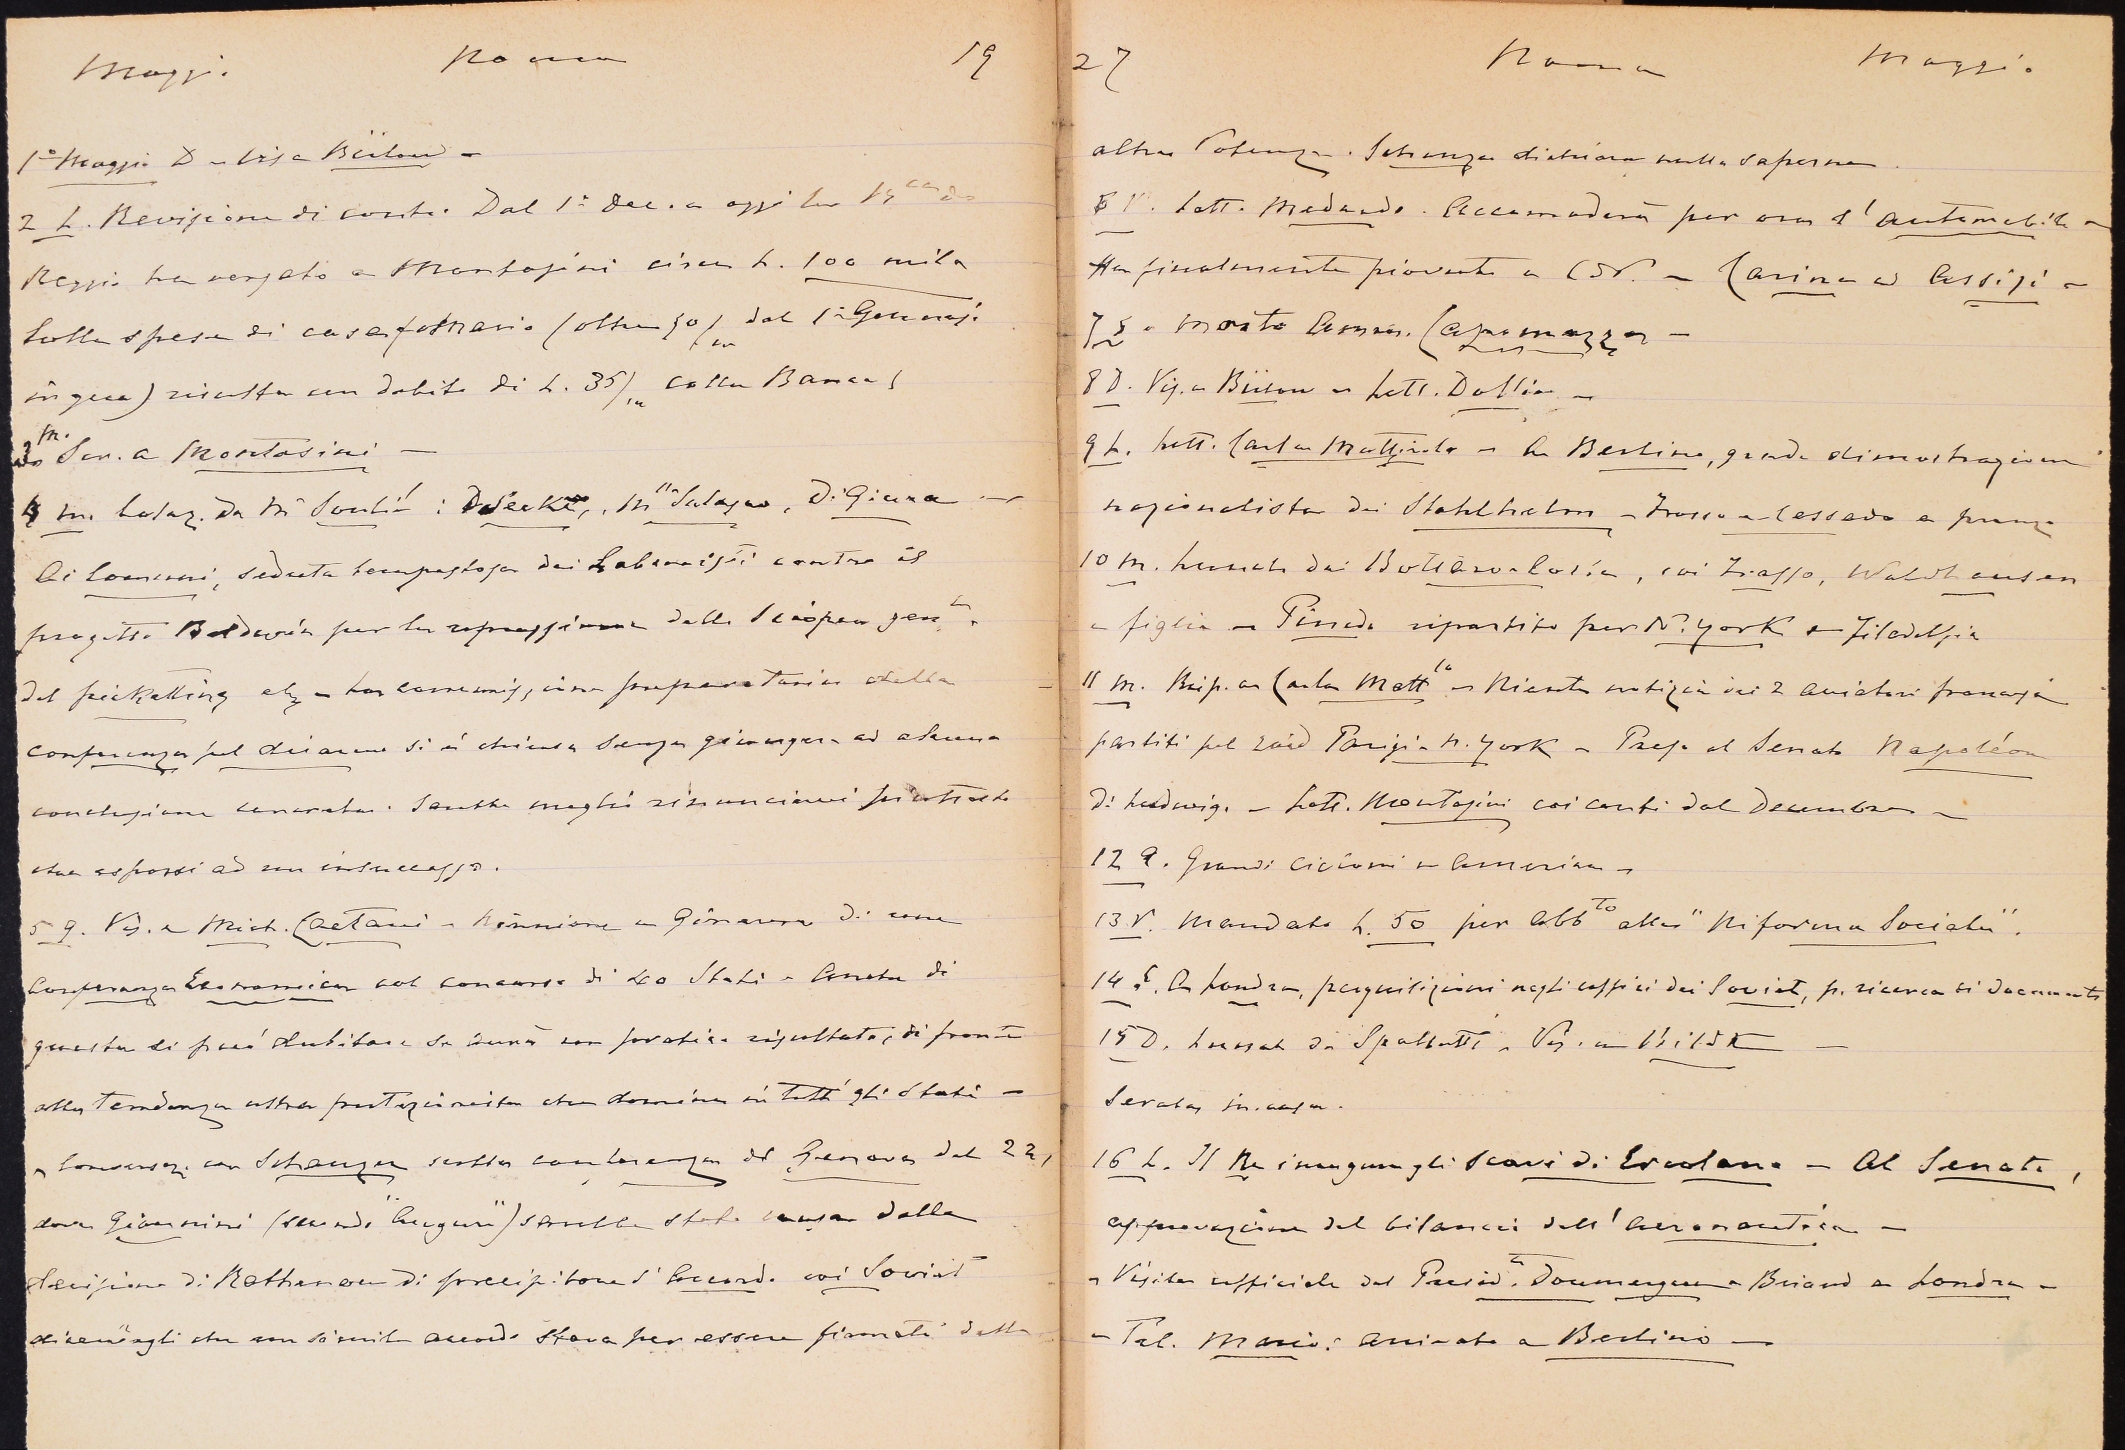 Maggio Roma 19
1° Maggio D – Vis. a Bülow –
2 L. Revisione di conti. Dal 1° Dec. a oggi la
Reggio ha versato a Montosini circa L. 100 mila
Sulle spese di casa (oltre 50/m dal 1° Gennaio
in qua) risulta un debito di L. 35/m colla Banca!
3 M. Scr. a Montosini –
4 M. Colaz. da Soulié: , Salazar, Di Giura –
Ai Comuni, seduta tempestosa dei Laburisti contro il
progetto Baldwin per la repressione dello Sciopero gen.le
del picketting etc – La commissione preparatoria della
conferenza pel disarmo si è chiusa senza giungere ad alcuna
conclusione concreta. Sarebbe meglio rinunciarvi piuttosto
che esporsi ad un insuccesso.
5 G. Vis. a Mich. Caetani – Riunione a Ginevra di una
Conferenza Economica col concorso di 40 Stati – Anche di
questa si può dubitare se avrà un pratico risultato, di fronte
alla tendenza ultra protezionista che domina in tutti gli Stati –
– Conversaz. con Schanzer sulla conferenza di Genova del 22,
dove Giannini (secondo ) sarebbe stato causa della
decisione di Rathenau di precipitare l'accordo coi Soviet
dicendogli che un simile accordo stava per essere firmato dalle
27 Roma Maggio
altre Potenze. Schanzer dichiara nulla saperne.
6 V. Lett. Medardo. Accomoderà per ora l'automobile –
Ha finalmente piovuto a CdR. – Carina ad Assisi –
7 S. Morto Amm. Capomazza –
8 D. Vis. a Bülow – Lett. Dollie –
9 L. Lett. Carla Mattirolo – A Berlino, grande dimostrazione
nazionalista dei Stahlhelm – a pranzo
10 M. Lunch dai Bottaro-Costa, coi , Waldhausen
e figlia – Pineda ripartito per N. York e Filadelfia
11 M. Risp. a Carla Matt.lo – Niente notizia dei 2 aviatori francesi
partiti pel raid Parigi-N. York – Preso al Senato Napoléon
di Ludwig. – Lett. Montosini coi conti dal Decembre –
12 G. Grandi cicloni in America –
13 V. Mandato L. 50 per abb.to alla "Riforma Sociale".
14 S. A Londra, perquisizioni negli uffici dei Soviet, p. ricerca di documenti
15 D. Lunch da Spalletti. Vis. a Bildt –
Serata in casa.
16 L. Il Re inaugura gli scavi di Ercolano – Al Senato,
approvazione del bilancio dell'Aeronautica –
– Visita ufficiale del Presid.te Doumergue e Briand a Londra –
– Tel. Mario: arrivato a Berlino –